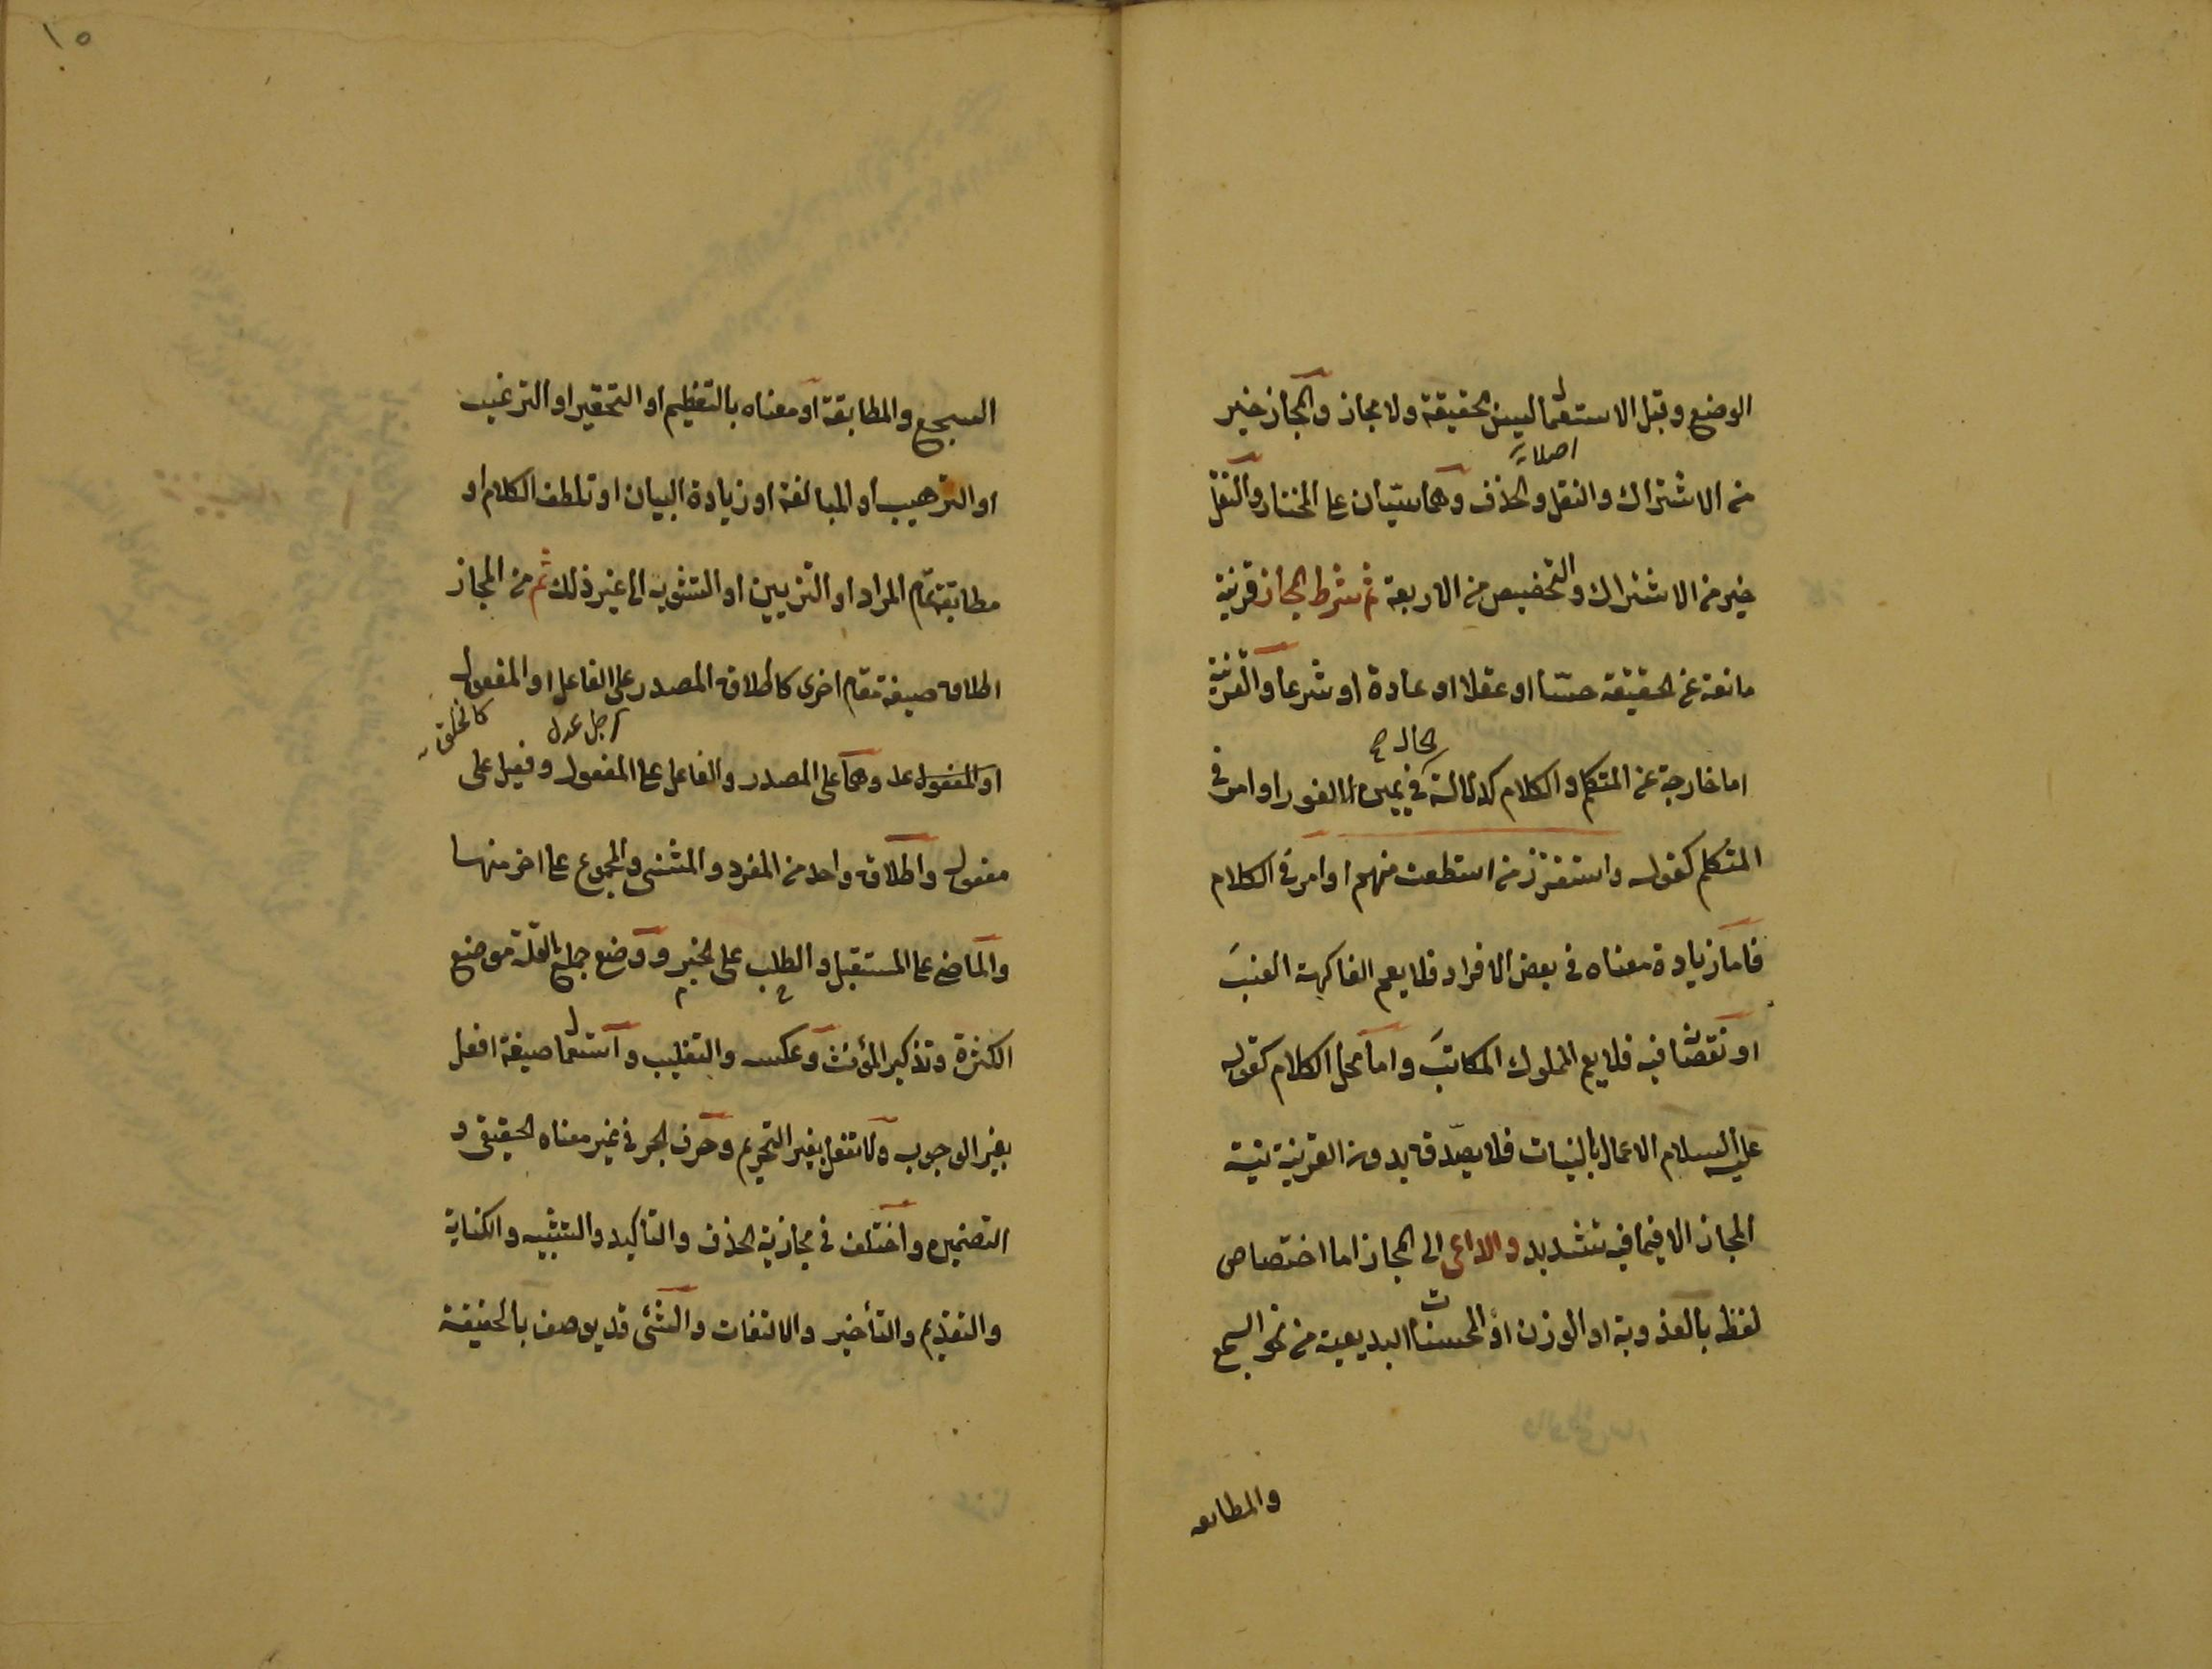 الوضع وقبل الاستعمال ليس بحقيقة ولا مجاز والمجاز خير
من الاشتراك والنقل والحذف وهما سيّان على المختار والنقل
خير من الاشتراك والتخصيص من الاربعة ثم شرط المجاز قرينة
مانعة عن الحقيقة حسّا او عقلا او عادة او شرعا والقرينة
اما خارجة عن المتكلم والكلام كدلالة الحال في يمين الفور او امر في
المتكلم كقوله واستفزز من استطعت منهم او امر في الكلام
فاما زيادة معناه في بعض الافراد فلا يعم الفاكهة العنبَ
او نقصانه فيه فلا يعم المملوك المكاتبَ واما محل الكلام كقوله
عليه السلام الاعمال بالنيات فلا يصدّق بدون القرينة نية
المجاز الا فيما فيه تشديد والداعى الى المجاز اما اختصاص
لفظه بالعذوبة او الوزن او المحسنات البديعية من نحو السجع
والمطابقة
١٥
السجع والمطابقة او معناه بالتعظيم او التحقير او الترغيب
او الترهيب او المبالغة او زيادة البيان او تلطف الكلام او
مطابقة تمام المراد او التزيين او التشويه الى غير ذلك ثم من المجاز
اطلاق صيغة مقام اخرى كاطلاق المصدر على الفاعل او المفعول
رجل عدل كالخلق
وهما على المصدر والفاعل على المفعول وفعيل على
مفعول واطلاق واحد من المفرد والمثنى والمجموع على اخر منها
والماضى على المستقبل والطلب على الخبر ووضع جمع القلة موضع
الكثرة وتذكير المؤنث وعكسه والتغليب واستعمال صيغة افعل
بغير الوجوب ولا تفعل بغير التحريم وحرف الجر في غير معناه الحقيقى و
التضمين واختلف في مجازية الحذف والتأكيد والتشبيه والكناية
والتقديم والتأخير والالتفات والشئ قد يوصف بالحقيقة